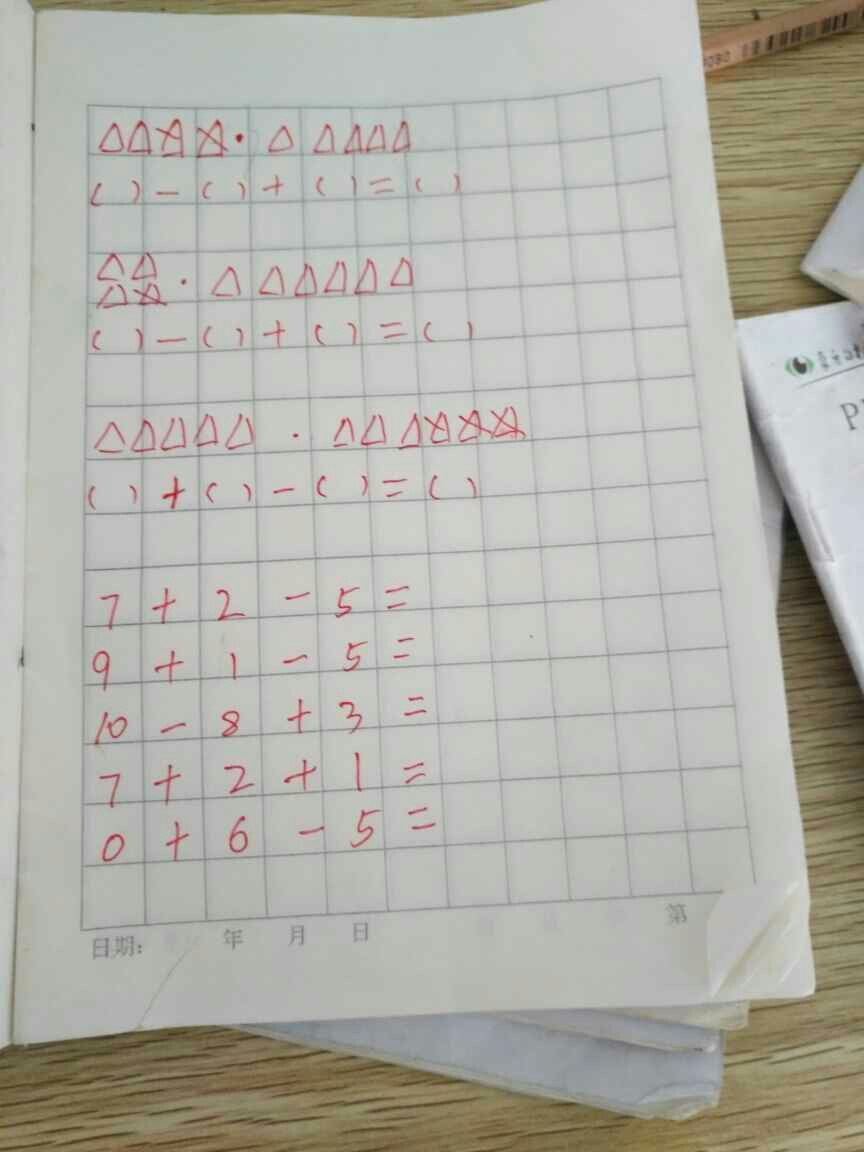 ( ) - ( ) + ( ) = ( )
( ) - ( ) + ( ) = ( )
( ) + ( ) - ( ) = ( )
7 + 2 - 5 =
9 + 1 - 5 =
10 - 8 + 3 =
7 + 2 + 1 =
0 + 6 - 5 =
日期: 年 月 日 第